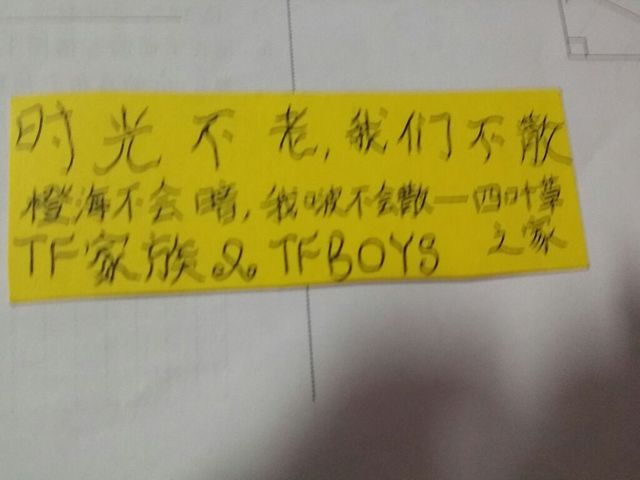 时光不老,我们不散
橙海不会暗,我啵不会散一四叶草
之家
TF家族& TFBOYS